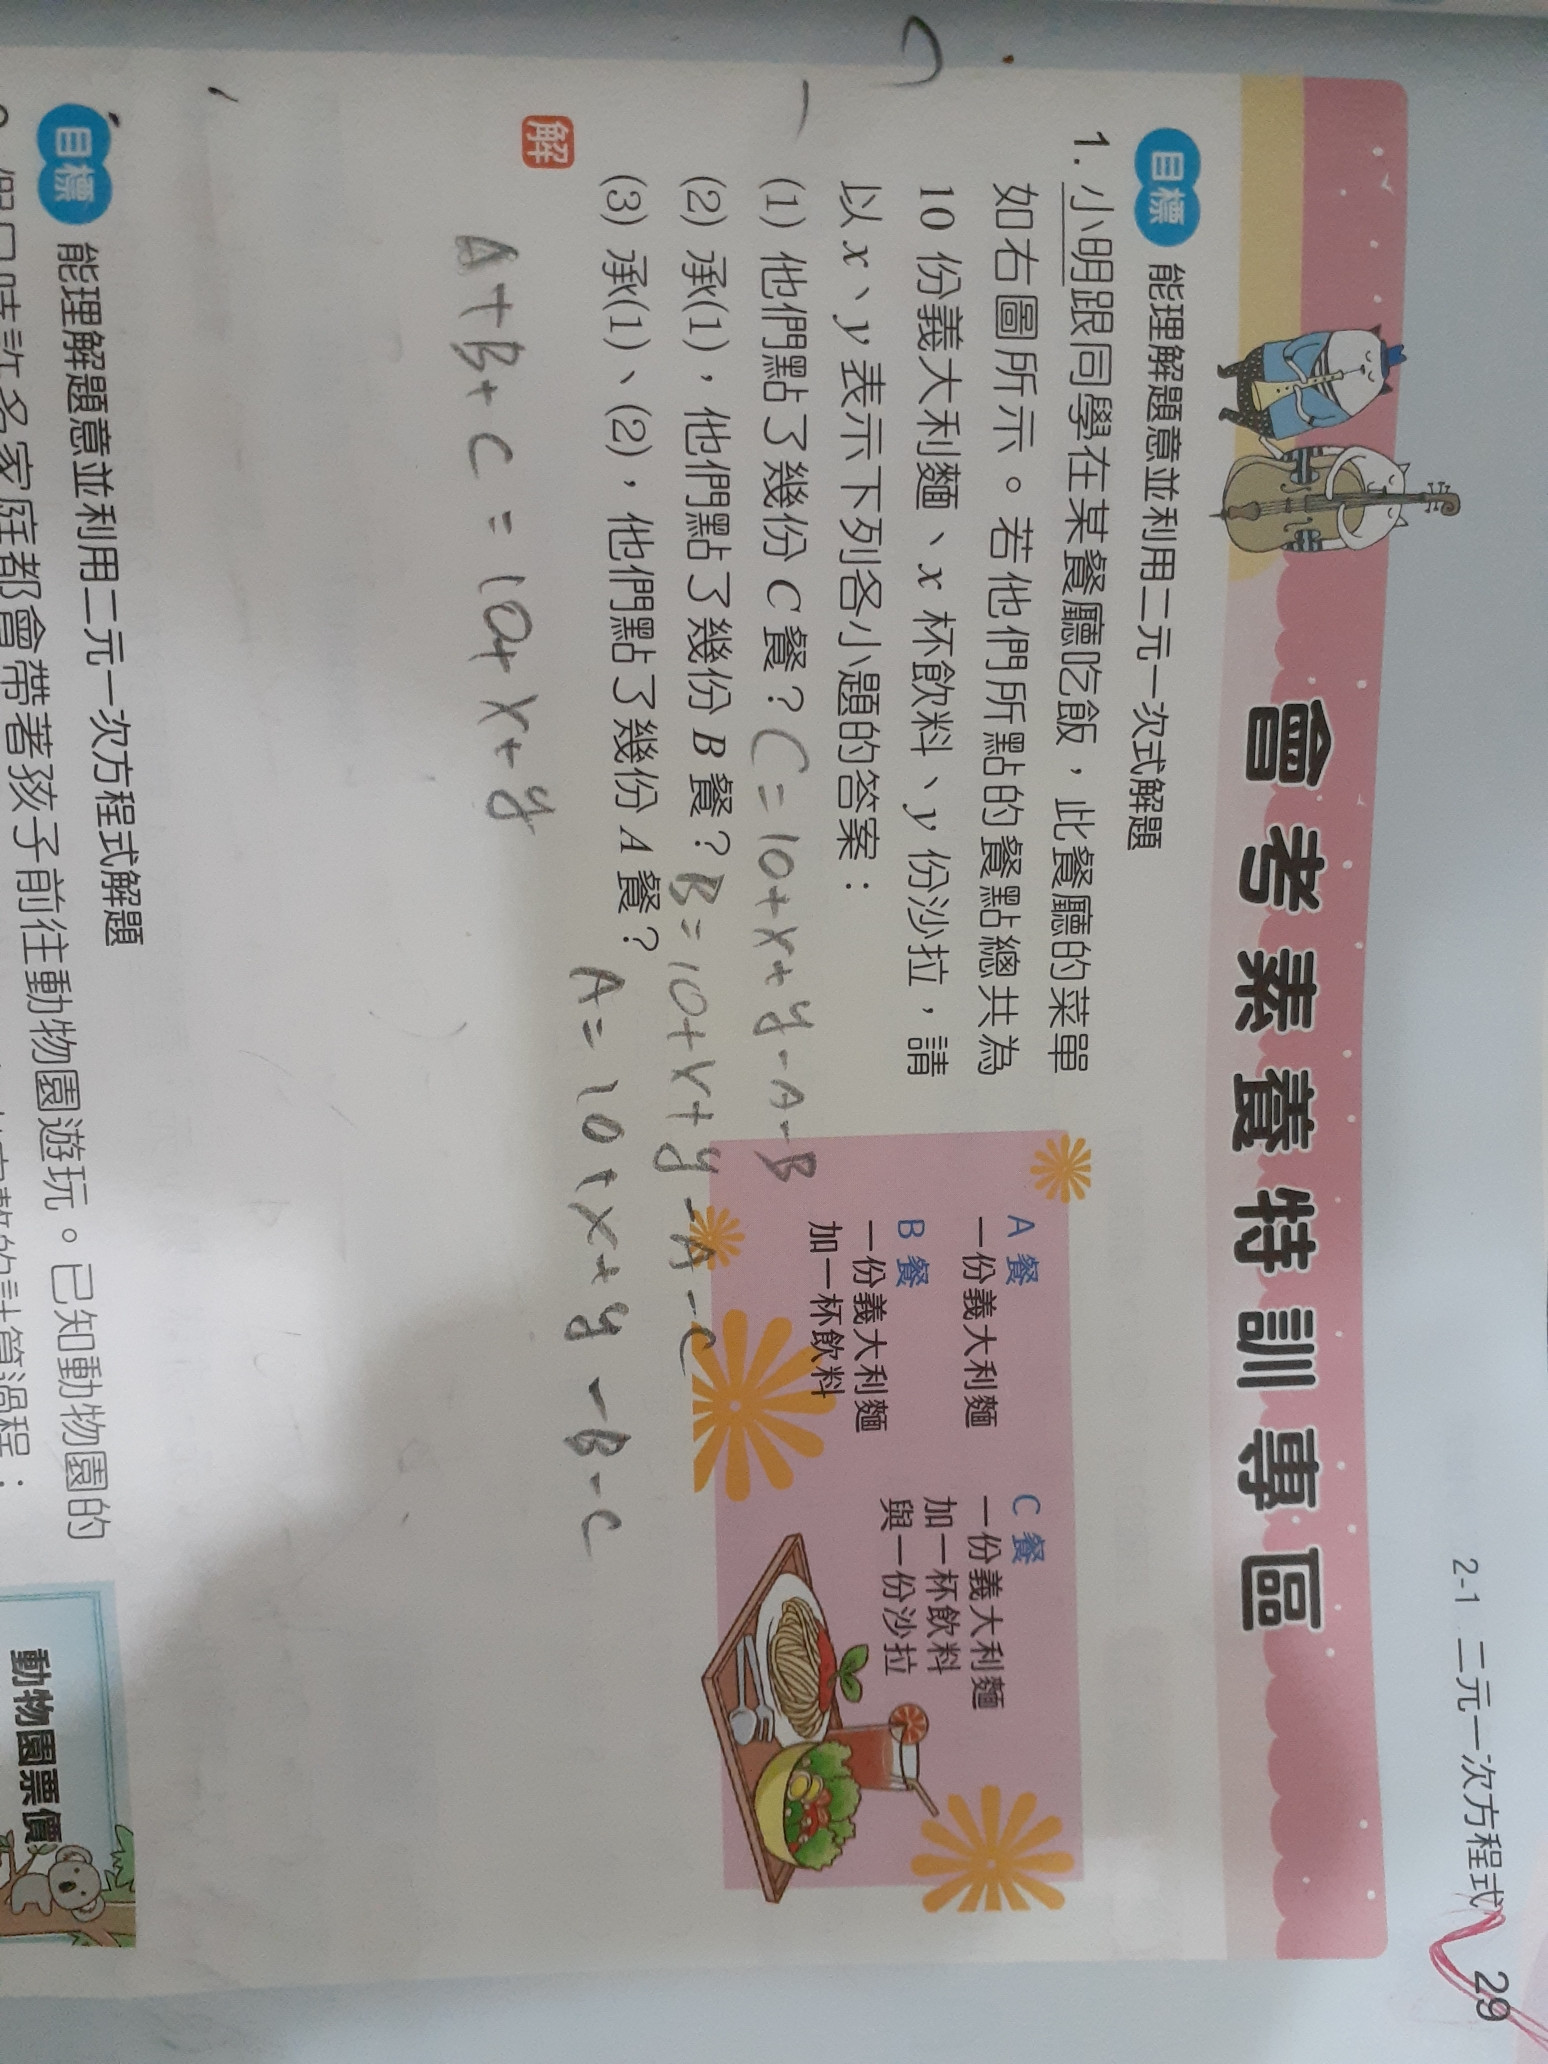 2-1 二元一次方程式 29
會考素養特訓專區
目標 能理解題意並利用二元一次式解題
1. 小明跟同學在某餐廳吃飯，此餐廳的菜單
如右圖所示。若他們所點的餐點總共為
10 份義大利麵、x 杯飲料、y 份沙拉，請
以 x、y 表示下列各小題的答案：
(1) 他們點了幾份 C 餐？ C=10+x+y-A-B
(2) 承(1)，他們點了幾份 B 餐？ B=10+x+y-A-C
(3) 承(1)、(2)，他們點了幾份 A 餐？ A=10+x+y-B-C
A 餐
一份義大利麵
B 餐
一份義大利麵
加一杯飲料
C 餐
一份義大利麵
加一杯飲料
與一份沙拉
解
A+B+C=10+x+y
目標 能理解題意並利用二元一次方程式解題
假日時許多家庭都會帶著孩子前往動物園遊玩。已知動物園的
計算過程：
動物園票價